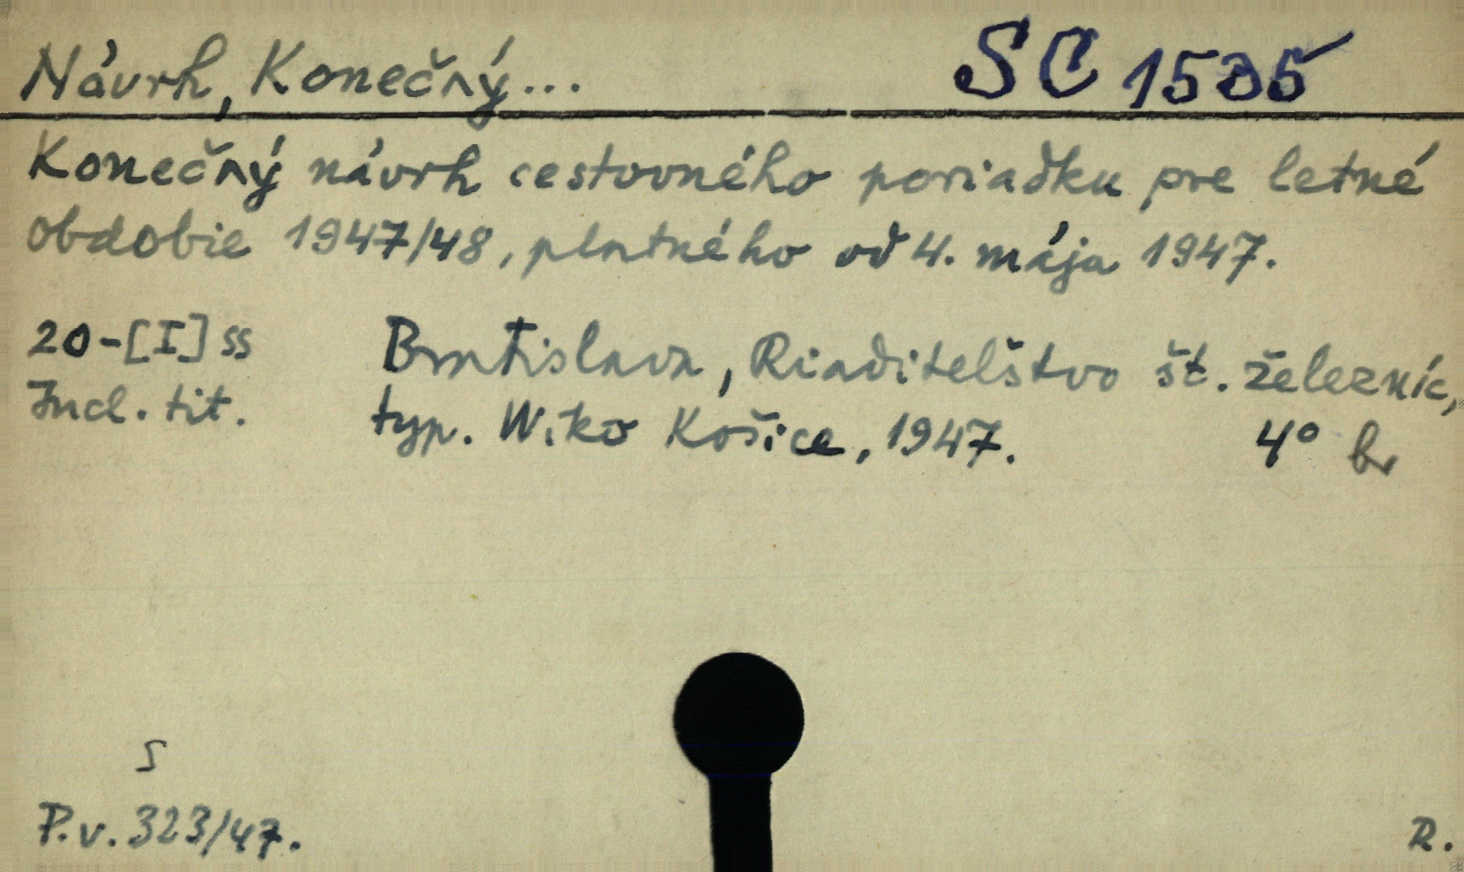 Návrh, Konečný... SC 1535
Konečný návrh cestovného poriadku pre letné
obdobie 1947/48, platného od 4. mája 1947.
20-[I] ss Bratislava, Riaditelštvo št. železníc,
Incl. tit. typ. Wiko Košice, 1947. 4° br
S
P.v. 323/47. R.